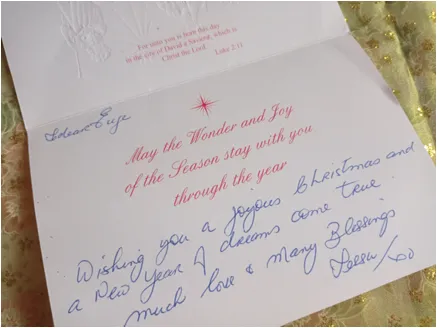 For unto you is born this day
in the city of David a Saviour, which is
Christ the Lord Luke 2:11
May the Wonder and Joy
of the Season stay with you
through the year
Wishing you a Joyous Christmas and
a New Year of dreams come true.
much love & Many Blessings